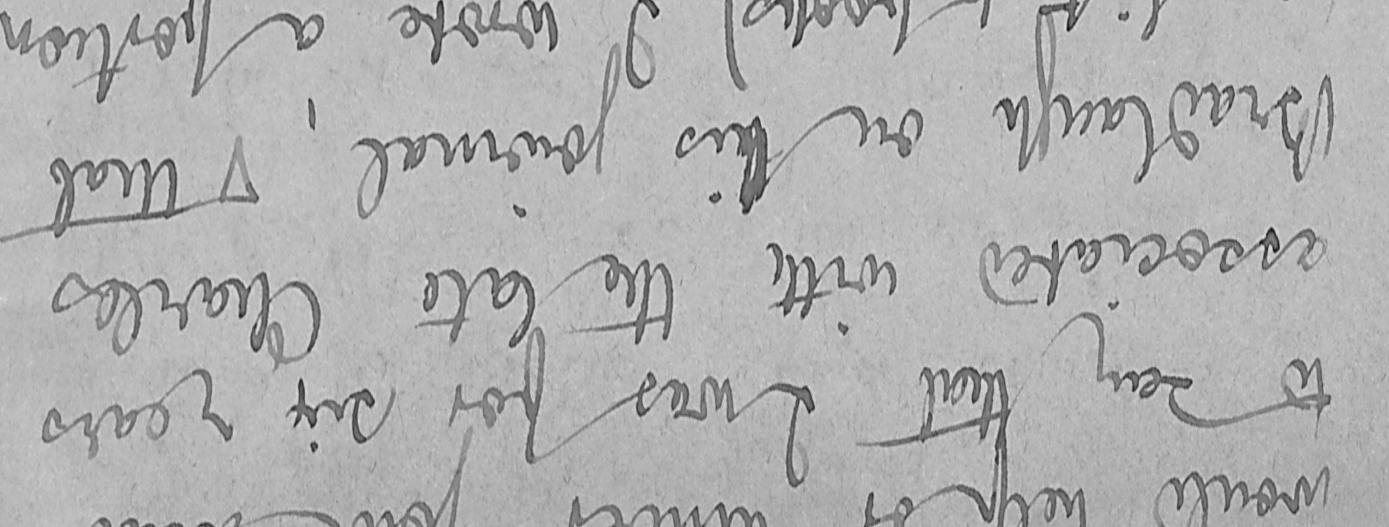 would help
to say that I was for six years
associated with the late Charles
Bradlaugh on his journal, & that
I wrote a portion